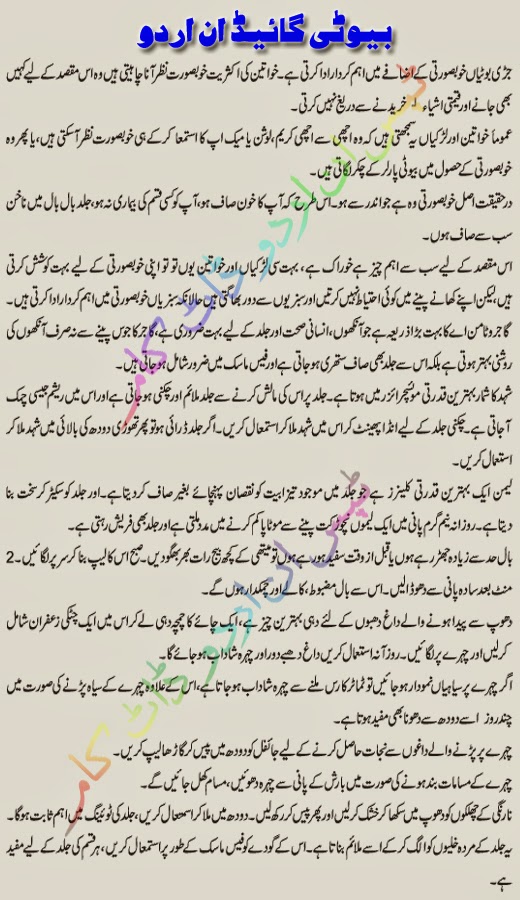 بیوٹی گائیڈ ان اردو
جڑی بوٹیاں خوبصورتی کے اضافے میں اہم کردار ادا کرتی ہے۔ خواتین کی اکثریت خوبصورت نظر آنا چاہتی ہیں وہ اس مقصد کے لیے کہیں
بھی جانے اور قیمتی اشیاء خریدنے سے دریغ نہیں کرتی۔
عموماً خواتین اور لڑکیاں یہ سمجھتی ہیں کہ وہ اچھی سے اچھی کریم، لوشن یا میک اپ کا استعمال کر کے ہی خوبصورت نظر آسکتی ہیں، یا پھر وہ
خوبصورتی کے حصول میں بیوٹی پارلر کے چکر لگاتی ہیں۔
درحقیقت اصل خوبصورتی وہ ہے جو اندر سے ہو۔ اس طرح کہ آپ کا خون صاف ہو، آپ کو کسی قسم کی بیماری نہ ہو، جلد بال بال میں ناخن
سب سے صاف ہوں۔
اس مقصد کے لیے سب سے اہم چیز ہے خوراک ہے، بہت سی لڑکیاں اور خواتین یوں تو تو اپنی خوبصورتی کے لیے بہت کوشش کرتی
ہیں، لیکن اپنے کھانے پینے میں کوئی احتیاط نہیں کرتیں اور سبزیوں سے دور بھاگتی ہیں حالانکہ سبزیاں خوبصورتی میں اہم کردار ادا کرتی ہیں۔
گاجر وٹامن اے کا بہت بڑا ذریعہ ہے جو آنکھوں، انسانی صحت اور جلد کے لیے بہت ضروری ہے، گاجر کا جوس پینے سے نہ صرف آنکھوں کی
روشنی بہتر ہوتی ہے بلکہ اس سے جلد بھی صاف ستھری ہو جاتی ہے اور فیس ماسک میں ضرور شامل ہو جاتی ہیں۔
شہد کا شمار بہترین قدرتی موئسچرائزر میں ہوتا ہے۔ جلد پر اس کی مالش کرنے سے جلد ملائم اور چکنی ہو جاتی ہے اور اس میں ریشم جیسی چمک
آجاتی ہے۔ چکنی جلد کے لیے انڈا پھینٹ کر اس میں شہد ملا کر استعمال کریں۔ اگر جلد ڈرائی ہو تو پھر تھوڑی دودھ کی بالائی میں شہد ملا کر
استعمال کریں۔
لیمن ایک بہترین قدرتی کلینزر ہے جو جلد میں موجود تیزابیت کو نقصان پہنچائے بغیر صاف کر دیتا ہے۔ اور جلد کو سکیڑ کر سخت بنا
دیتا ہے۔ روزانہ نیم گرم پانی میں ایک لیموں نچوڑ کت پینے سے موٹاپا کم کرنے میں مدد ملتی ہے اور جلد بھی فریش رہتی ہے۔
بال حد سے زیادہ جھڑ رہے ہوں یا قبل از وقت سفید ہو رہے ہوں تو میتھی کے کچھ بیج رات بھر بھگو دیں۔ صبح اس کا لیپ بنا کر سر پر لگائیں۔ 2
منٹ بعد سادہ پانی سے دھو ڈالیں۔ اس سے بال مضبوط، کالے اور چمکدار ہوں گے۔
دھوپ سے پیدا ہونے والے داغ دھبوں کے لئے دہی بہترین چیز ہے، ایک چائے کا چمچہ دہی لے کر اس میں ایک چٹکی زعفران شامل
کر لیں اور چہرے پر لگائیں۔ روزآنہ استعمال کریں داغ دھبے دور اور چہرہ شاداب ہو جائے گا۔
اگر چہرے پر سیاہیاں نمودار ہو جائیں تو ٹماٹر کا رس ملنے سے چہرہ شاداب ہو جاتا ہے، اس کے علاوہ چہرے کے سیاہ پڑنے کی صورت میں
چند روز اسے دودھ سے دھونا بھی مفید ہوتا ہے۔
چہرے پر پڑنے والے داغوں سے نجات حاصل کرنے کے لیے جائفل کو دودھ میں پیس کر گاڑھا لیپ کریں۔
چہرے کے مسامات بند ہونے کی صورت میں بارش کے پانی سے چہرہ دھوئیں، مسام کھل جائیں گے۔
نارنگی کے چھلکوں کو دھوپ میں سکھا کر خشک کر لیں اور پھر پیس کر رکھ لیں۔ دودھ میں ملا کر استعمال کریں، جلد کی ٹوئیننگ میں اہم ثابت ہوگا۔
یہ جلد کے مردہ خلیوں کو الگ کر کے اسے ملائم بناتا ہے۔ اس کے گودے کو فیس ماسک کے طور پر استعمال کریں، ہر قسم کی جلد کے لیے مفید
ہے۔
ٹپس ان اردو ڈاٹ کام
ٹپس ان اردو ڈاٹ کام